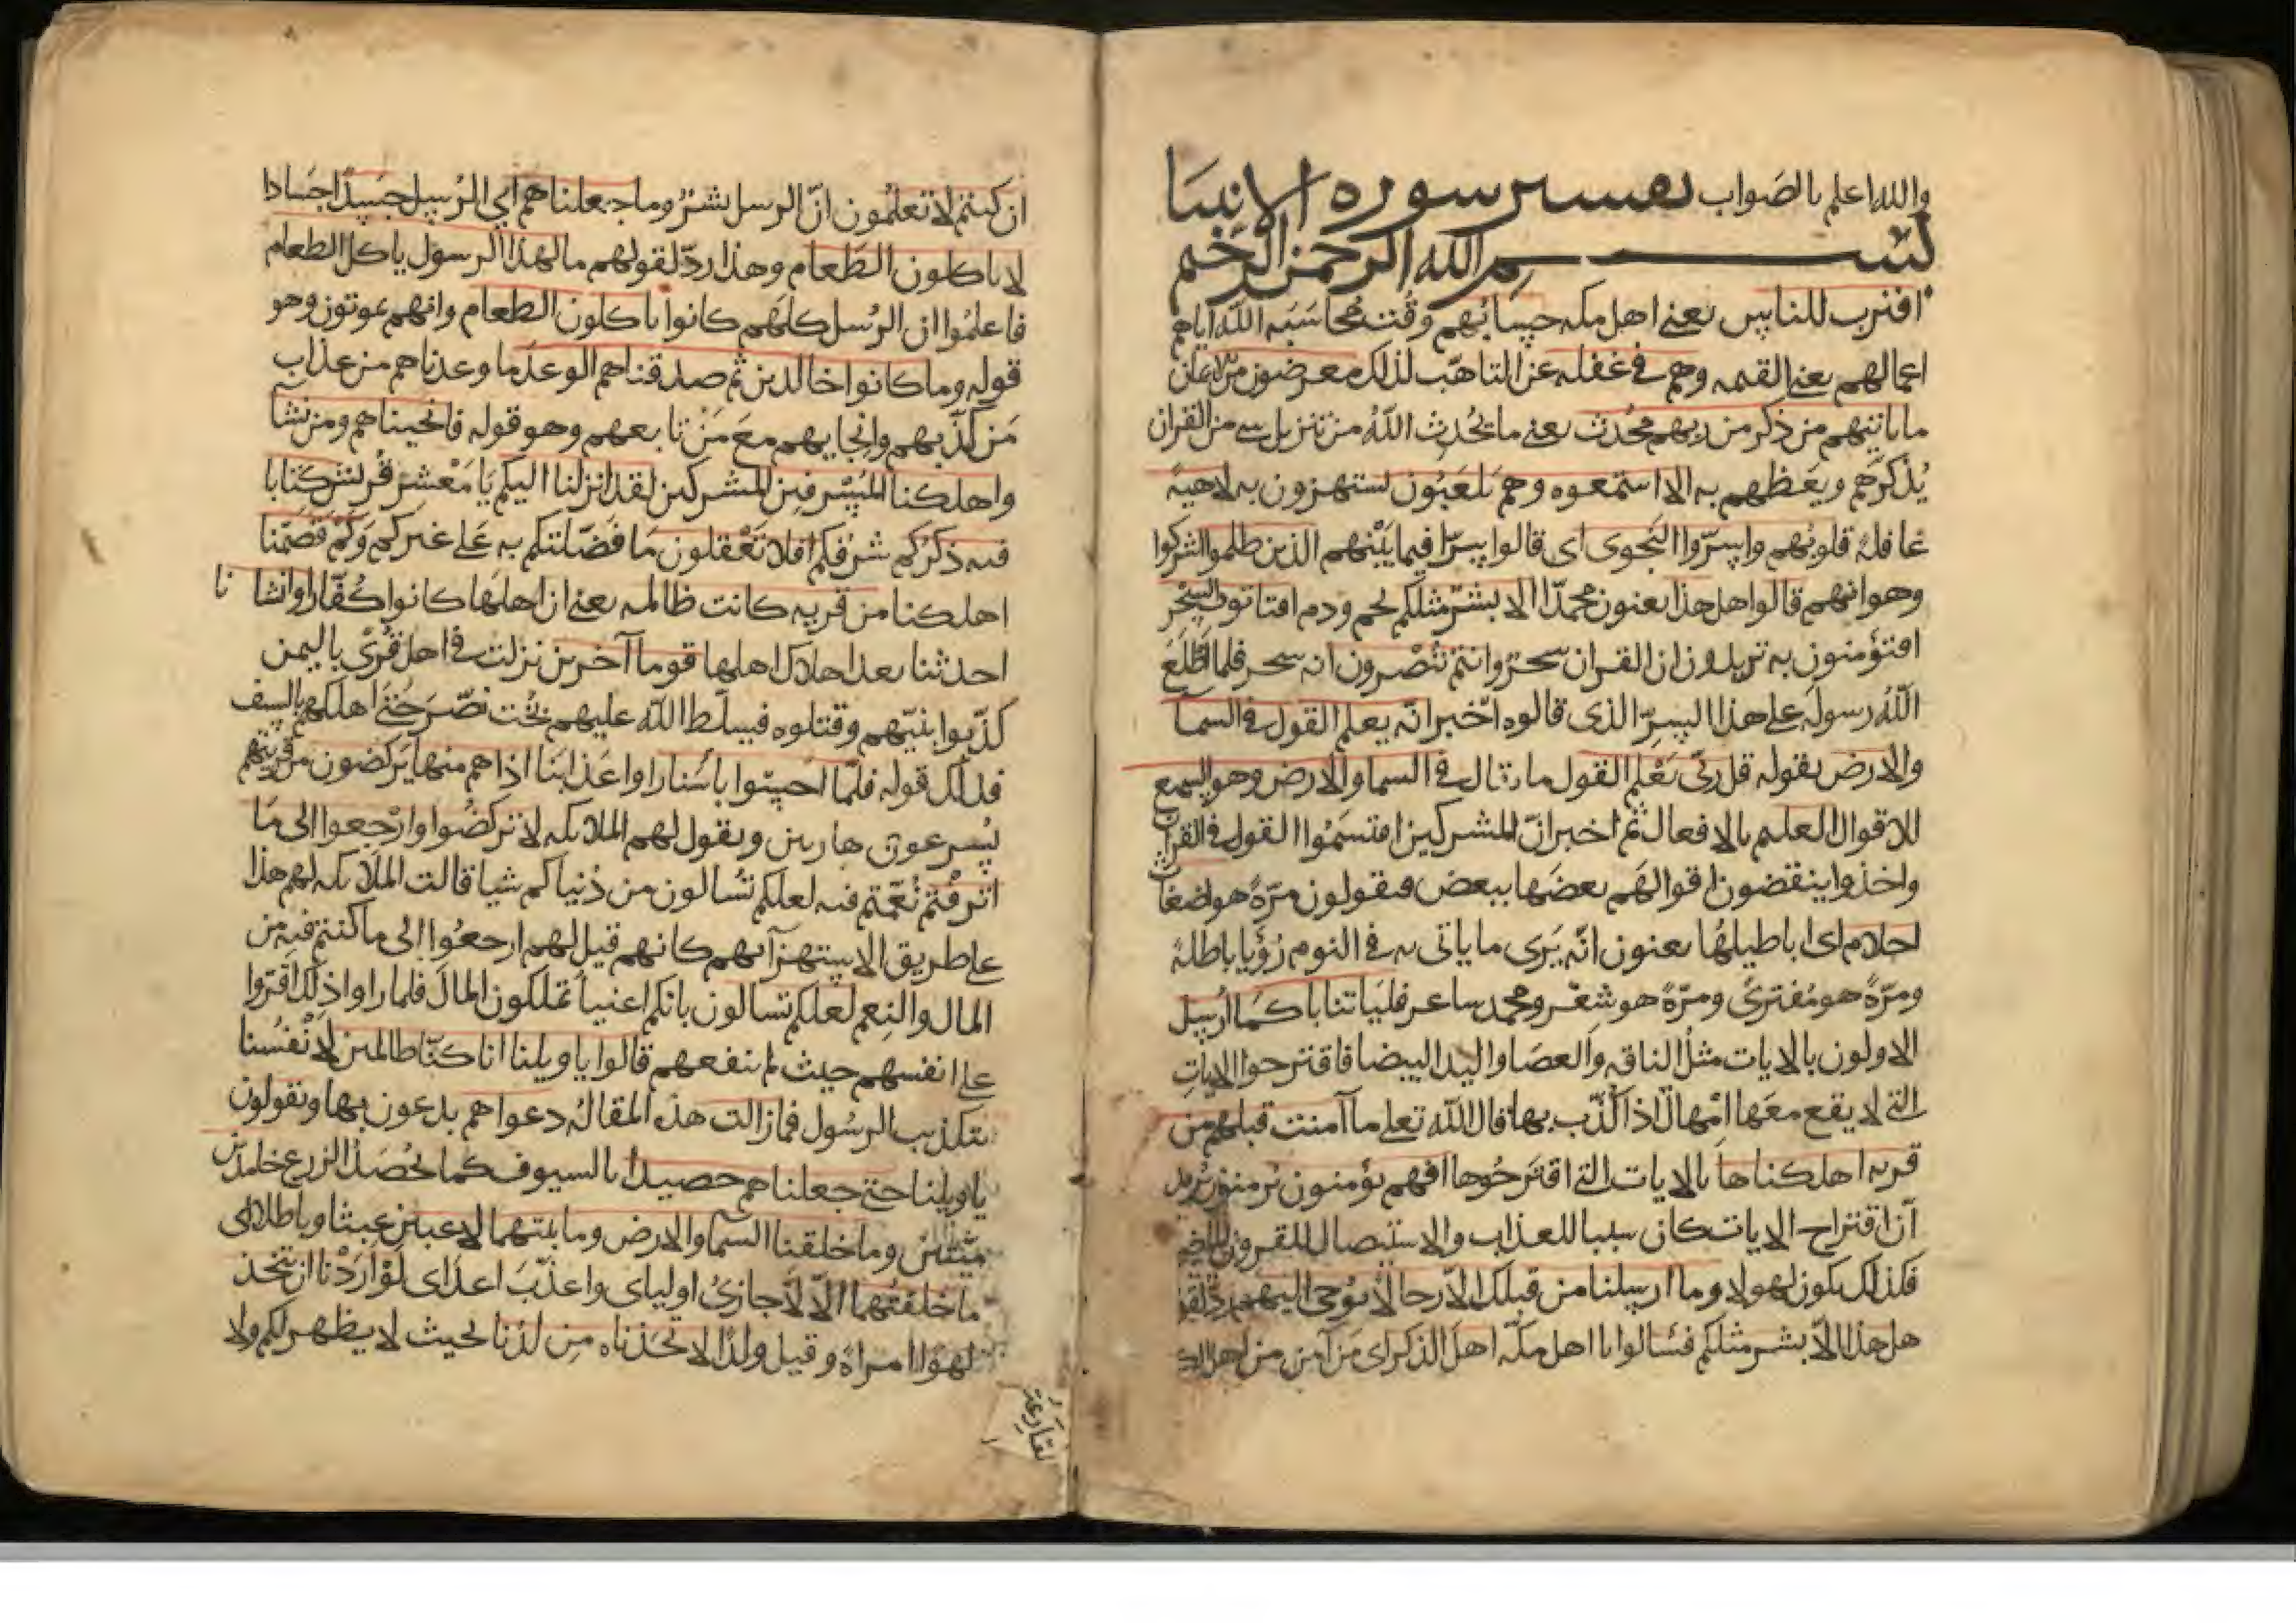 والله اعلم بالصواب تفسير سوره الانبيا
بسم الله الرحمن الرحيم
اقترب للناس يعني اهل مكه حسابهم وقت محاسبه الله اياهم
اعمالهم يعني القيمه وهم في غفله عن التاهب لذلك معرضون عن الايمان
ما ياتيهم من ذكر من ربهم محدث يعني ما يحدث الله من تنزيل شي من القران
يذكرهم ويعظهم به الا استمعوه وهم يلعبون يستهزون به لاهية
غافلة قلوبهم واسرّوا النجوى اى قالوا سرّا فيما بينهم الذين ظلموا اشركوا
وهو انهم قالوا هل هذا يعنون محمدا الا بشر مثلكم لحم ودم افتاتون السحر
افتؤمنون به تريدون ان القران سحر وانتم تبصرون انه سحر فلما اطلع
الله رسوله على هذا السرّ الذى قالوه اخبر انّه يعلم القول في السما
والارض بقوله قل ربّى يعلم القول ما يقال في السما والارض وهو السميع
للاقوال العليم بالافعال ثم اخبر انّ المشركين اقتسموا القول في القران
واخذوا ينقضون اقوالهم بعضها ببعض فيقولون مرّة هو اضغاث
احلام اى اباطيلها يعنون انّه يرى ما ياتى به في النوم رؤيا باطلة
ومرّة هو مفترى ومرّة هو شعر ومحمد ساعر فلياتنا باية كما ارسل
الاولون بالايات مثل الناقه والعصا واليد البيضا فاقترحوا الايات
التي لا يقع معها امهال اذا كُذّب بها قال الله تعلى ما آمنت قبلهم من
قريه اهلكناها بالايات التي اقترحوها افهم يؤمنون يريد
ان اقتراح الايات كان سببا للعذاب والاستيصال للقرون الماضيه
فكذلك يكون لهولا وما ارسلنا من قبلك الّا رجالا نوحى اليهم ردّ لقولهم
هل هذا الّا بشر مثلكم فسالوا يا اهل مكّه اهل الذكر اى من آمن من اهل الك
ان كنتم لا تعلمون انّ الرسل بشر وما جعلناهم اي الرسل جسدًا اجسادا
لا ياكلون الطعام وهذا ردّ لقولهم ما لهذا الرسول ياكل الطعام
فاعلموا ان الرسل كلهم كانوا ياكلون الطعام وانهم يموتون وهو
قوله وما كانوا خالدين ثم صدقناهم الوعد ما وعدناهم من عذاب
من كذّبهم وانجايهم مع من تابعهم وهو قوله فانجيناهم ومن نشا
واهلكنا المسرفين المشركين لقد انزلنا اليكم يا معشر قريش كتابا
فيه ذكركم شرفكم افلا تعقلون ما فضّلتكم به على غيركم وكم قصمنا
اهلكنا من قريه كانت ظالمه يعني ان اهلها كانوا كفّارا وانشا نا
احدثنا بعد اهلاك اهلها قوما آخرين نزلت في اهل قرى باليمن
كذّبوا نبيّهم وقتلوه فسلّط الله عليهم بخت نصّر حتى اهلكهم بالسيف
فذلك قوله فلمّا احسّوا باسنا راوا عذابنا اذا هم منها يركضون من قريتهم
يسرعون هاربين وتقول لهم الملايكه لا تركضوا وارجعوا الى ما
اترفتم نُعّمتم فيه لعلكم تسالون من دنياكم شيا قالت الملايكه لهم هذا
على طريق الاستهزآ بهم كانهم قيل لهم ارجعوا الى ما كنتم فيه من
المال والنعم لعلكم تسالون بانكم اغنيآ تملكون المال فلما راوا ذلك اقروا
على انفسهم حيث لم ينفعهم قالوا يا ويلنا انا كنّا ظالمين لانفسنا
بتكذيب الرسول فمازالت هذه المقالة دعواهم يدعون بها ويقولون
يا ويلنا حتى جعلناهم حصيدا بالسيوف كما يحصد الزرع خامدين
ميّتين وما خلقنا السما والارض وما بينهما لاعبين عبثا وباطلا اى
ما خلقتهما الّا لاجازى اولياى واعذّب اعداى لو اردنا ان نتخذ
لهوا امراة وقيل ولدا لاتخذناه من لدنا بحيث لا يظهر لكم ولا